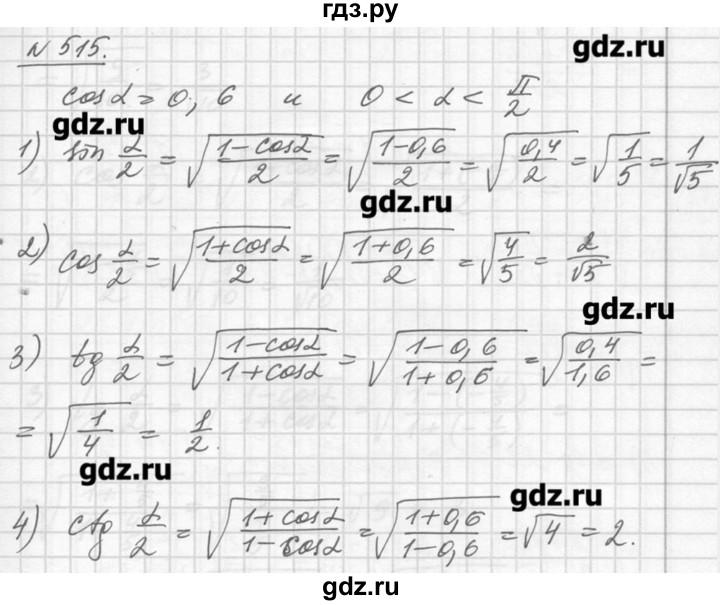 гдз.ру
gdz.ru
N 515.
cos α = 0,6 и 0 < α < π/2
gdz.ru
1) sin α/2 = √((1-cosα)/2) = √((1-0,6)/2) = √(0,4/2) = √(1/5) = 1/√5
gdz.ru
2) cos α/2 = √((1+cosα)/2) = √((1+0,6)/2) = √(4/5) = 2/√5
gdz.ru
3) tg α/2 = √((1-cosα)/(1+cosα)) = √((1-0,6)/(1+0,6)) = √(0,4/1,6) =
= √(1/4) = 1/2.
gdz.ru
gdz.ru
4) ctg α/2 = √((1+cosα)/(1-cosα)) = √((1+0,6)/(1-0,6)) = √4 = 2.
gdz.ru